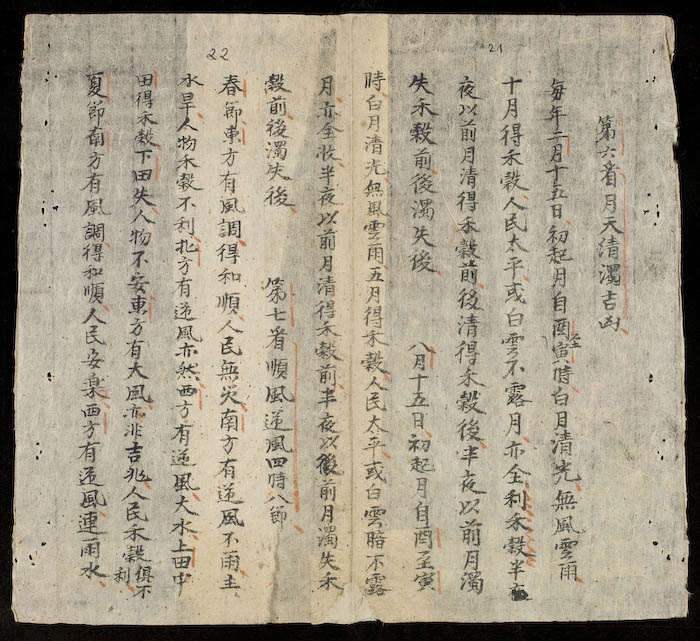 21
第六看月天清濁吉凶
每年二月十五日初起月自酉至寅時白月清光無風雲雨
十月得禾穀人民太平或白雲不露月亦全利禾穀半夜
夜以前月清得禾穀前後清得禾穀後半夜以前月濁
失禾穀前後濁失後 八月十五日初起月自酉至寅
時白月清光無風雲雨五月得禾穀人民太平或白雲暗不露
22
月亦全收半夜以前月清得禾穀前半夜以後前月濁失禾
穀前後濁失後 第七看順風逆風四時八節
春節東方有風調得和順人民無災南方有逆風不雨主
水旱人物禾穀不利北方有逆風亦然西方有逆風大水上田中
田得禾穀下田失人物不安東方有大風亦非吉兆人民禾穀俱不利
夏節南方有風調得和順人民安楽西方有逆風連雨水